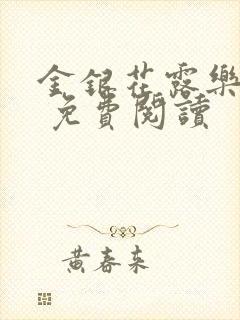 金銀花露樂
免費閱讀
黃春來